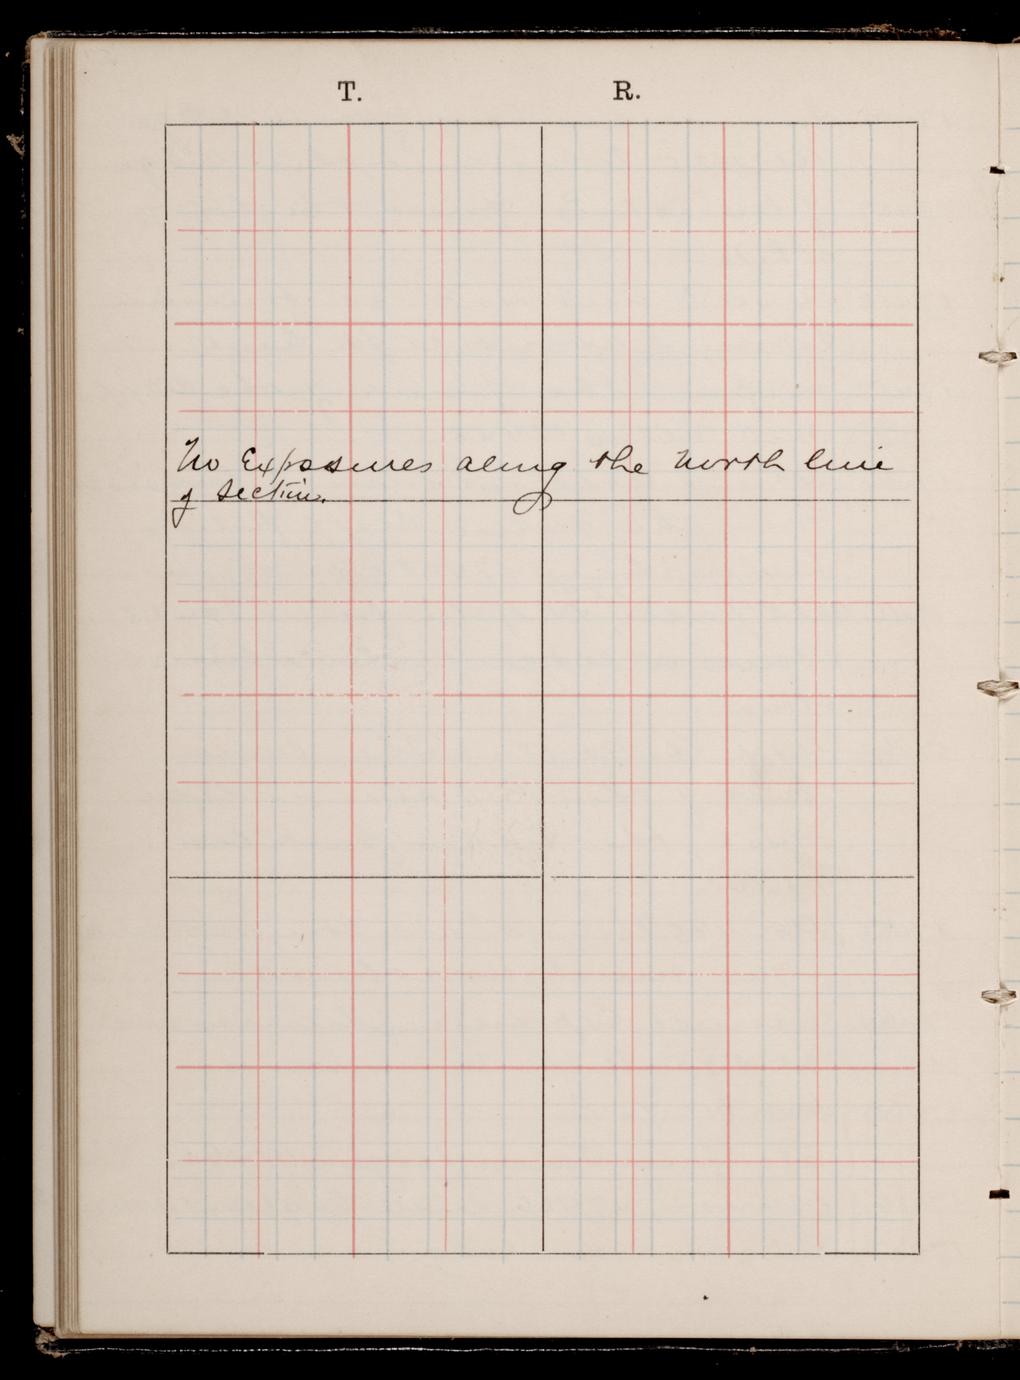 T. R.
No Exposures along the North line
of section.